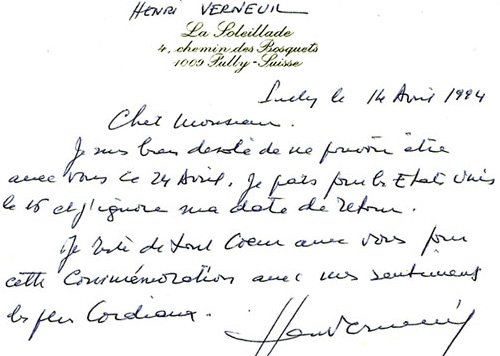 HENRI VERNEUIL
La Soleillade
4, chemin des Bosquets
1009 Pully-Suisse
le 14 Avril 1994
Cher Monsieur.
Je suis bien désolé de ne pouvoir être
avec vous ce 24 Avril. Je pars pour les Etats Unis
le 15 et j'ignore ma date de retour.
Je reste de tout Coeur avec vous pour
cette Commémoration avec mes sentiments
les plus Cordiaux.